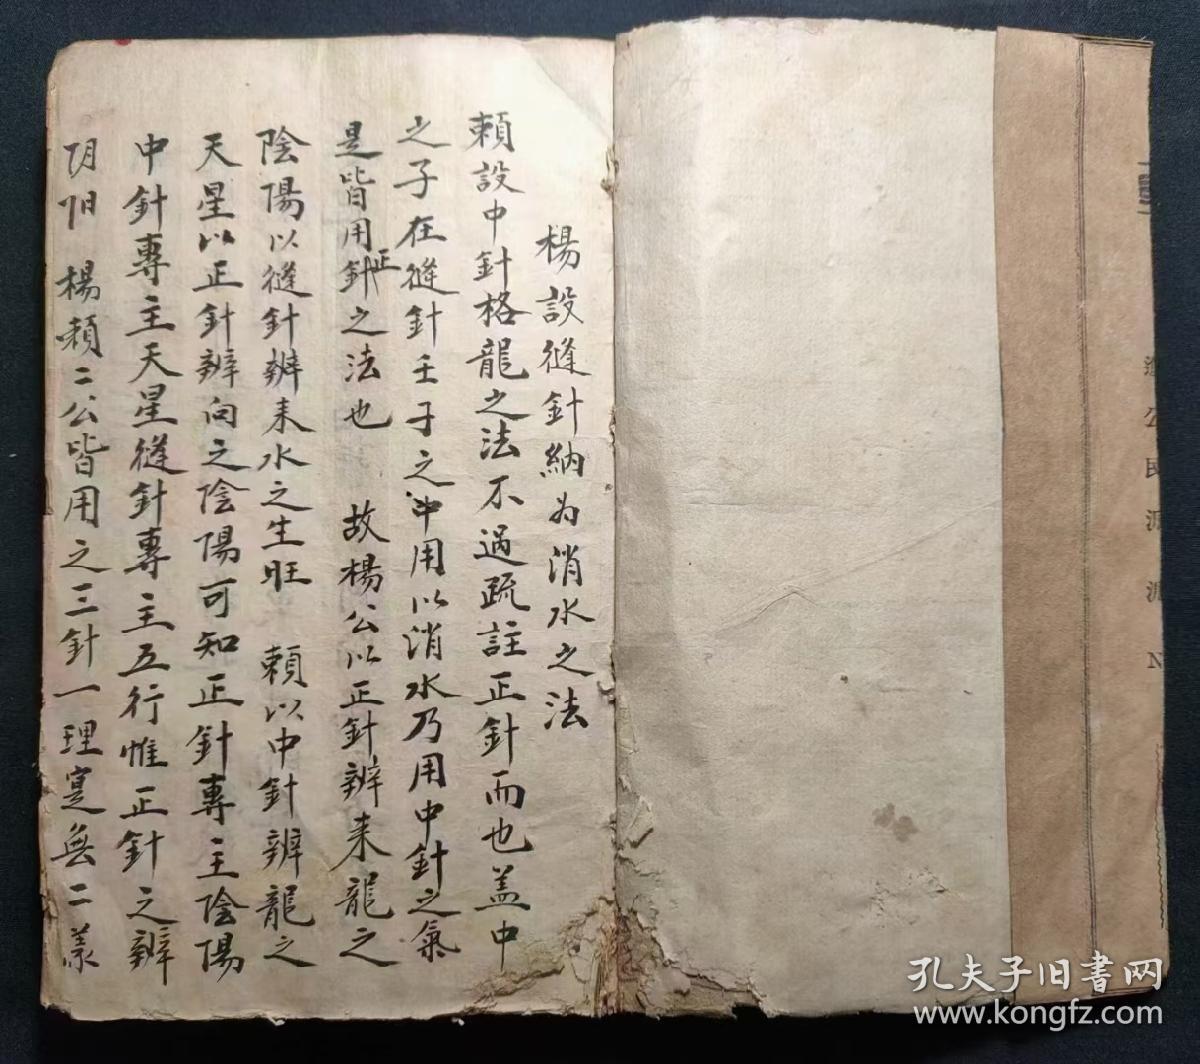 楊設縫針納为消水之法
賴設中針格龍之法不過疏註正針而也盖中
之子在縫針壬子之中用以消水乃用中針之氣
是皆用正針之法也 故楊公以正針辨来龍之
陰陽以縫針辨来水之生旺 賴以中針辨龍之
天星以正針辨向之陰陽可知正針專主陰陽
中針專主天星縫針專主五行惟正針之辨
阴阳 楊賴二公皆用之三針一理寔無二義
公民
N
孔夫子旧書网
www.kongfz.com